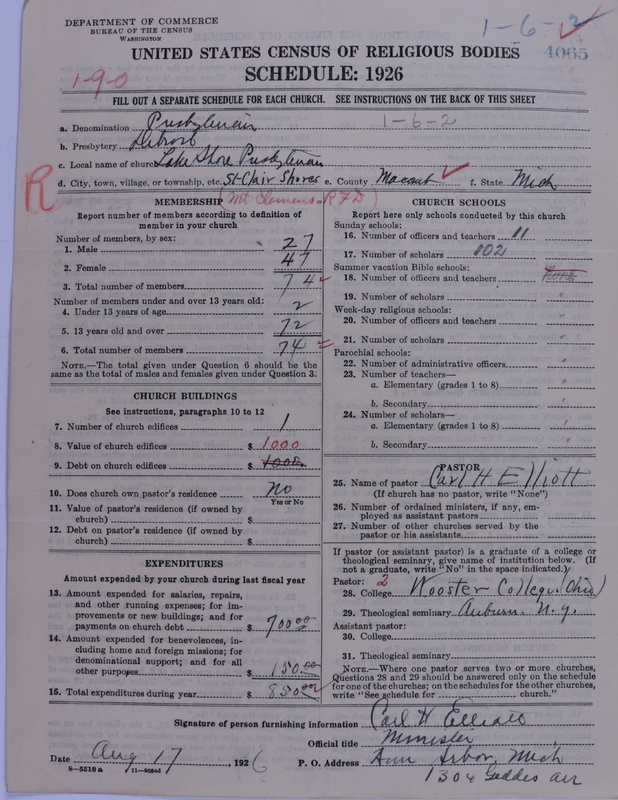 DEPARTMENT OF COMMERCE
BUREAU OF THE CENSUS
WASHINGTON
1-6-2
4065
UNITED STATES CENSUS OF RELIGIOUS BODIES
SCHEDULE: 1926
1-9-0
FILL OUT A SEPARATE SCHEDULE FOR EACH CHURCH. SEE INSTRUCTIONS ON THE BACK OF THIS SHEET
a. Denomination Presbyterian 1-6-2
b. Presbytery Detroit
c. Local name of church Lake Shore Presbyterian
R
d. City, town, village, or township, etc. St Clair Shores e. County Macomb f. State Mich
(Mt Clemens - RFD)
MEMBERSHIP
Report number of members according to definition of
member in your church
Number of members, by sex:
1. Male 27
2. Female 47
3. Total number of members 74
Number of members under and over 13 years old:
4. Under 13 years of age 2
5. 13 years old and over 72
6. Total number of members 74
NOTE.—The total given under Question 6 should be
same as the total of males and females given under Question 3.
CHURCH BUILDINGS
See instructions, paragraphs 10 to 12
7. Number of church edifices 1
8. Value of church edifices $ 1000
9. Debt on church edifices $ 1000
10. Does church own pastor's residence No
Yes or No
11. Value of pastor's residence (if owned by
church) $
12. Debt on pastor's residence (if owned by
church) $
EXPENDITURES
Amount expended by your church during last fiscal year
13. Amount expended for salaries, repairs,
and other running expenses; for im-
provements or new buildings; and for
payments on church debt $ 700.00
14. Amount expended for benevolences, in-
cluding home and foreign missions; for
denominational support; and for all
other purposes $ 150.00
15. Total expenditures during year $ 850.00
CHURCH SCHOOLS
Report here only schools conducted by this church
Sunday schools:
16. Number of officers and teachers 11
17. Number of scholars 102
Summer vacation Bible schools:
18. Number of officers and teachers None
19. Number of scholars "
Week-day religious schools:
20. Number of officers and teachers "
21. Number of scholars "
Parochial schools:
22. Number of administrative officers "
23. Number of teachers—
a. Elementary (grades 1 to 8) "
b. Secondary "
24. Number of scholars—
a. Elementary (grades 1 to 8) "
b. Secondary "
PASTOR
25. Name of pastor Carl H Elliott
(If church has no pastor, write "None")
26. Number of ordained ministers, if any, em-
ployed as assistant pastors
27. Number of other churches served by the
pastor or his assistants
If pastor (or assistant pastor) is a graduate of a college or
theological seminary, give name of institution below. (If
not a graduate, write "No" in the space indicated.)
Pastor: 2
28. College Wooster College (Ohio)
29. Theological seminary Auburn N.Y.
Assistant pastor:
30. College
31. Theological seminary
NOTE.—Where one pastor serves two or more churches,
Questions 28 and 29 should be answered only on the schedule
for one of the churches; on the schedules for the other churches,
write "See schedule for church."
Signature of person furnishing information Carl H Elliott
Official title Minister
Date Aug 17, 1926 P. O. Address Ann Arbor, Mich
8-5518 a 11-9084d 1304 Geddes Ave